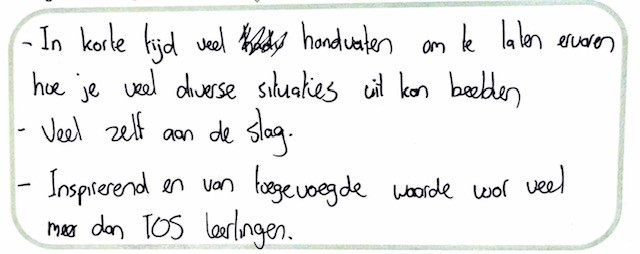 - In korte tijd veel handvaten om te laten ervaren
hoe je veel diverse situaties uit kan beelden
- Veel zelf aan de slag.
- Inspirerend en van toegevoegde waarde voor veel
meer dan TOS leerlingen.